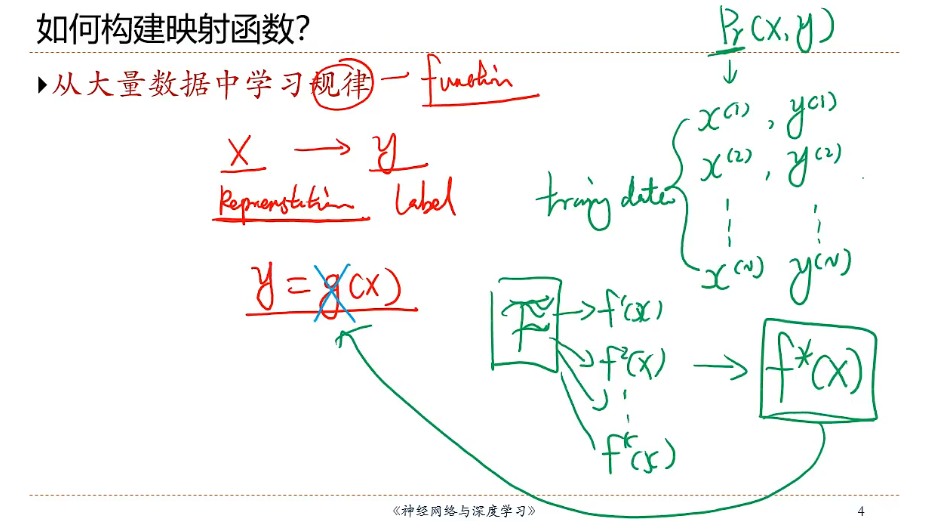 如何构建映射函数?
从大量数据中学习规律 — function
x → y
Representation Label
y = g(x)
Pr(x,y)
↓
x⁽¹⁾, y⁽¹⁾
x⁽²⁾, y⁽²⁾
training data
x⁽ᴺ⁾ y⁽ᴺ⁾
F → f¹(x)
f²(x) → f*(x)
fᴷ(x)
《神经网络与深度学习》
4